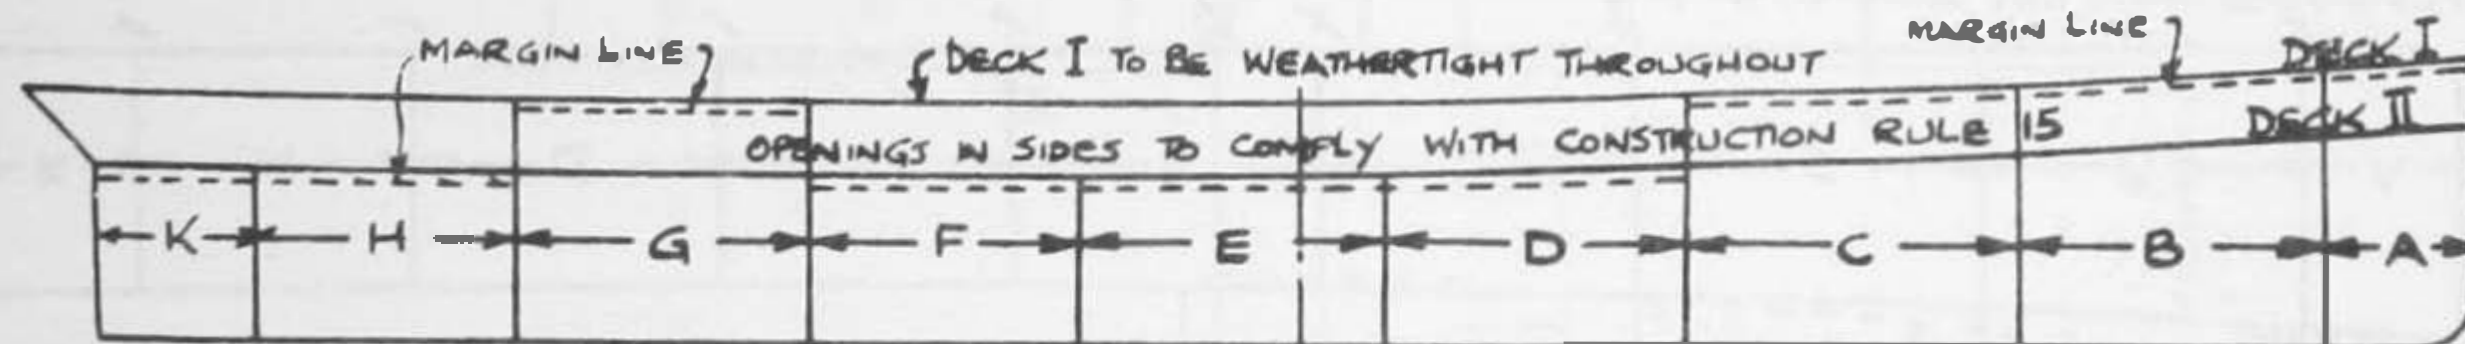 MARGIN LINE
DECK I TO BE WEATHERTIGHT THROUGHOUT
MARGIN LINE
DECK I
OPENINGS IN SIDES TO COMPLY WITH CONSTRUCTION RULE 15
DECK II
K H G F E D C B A